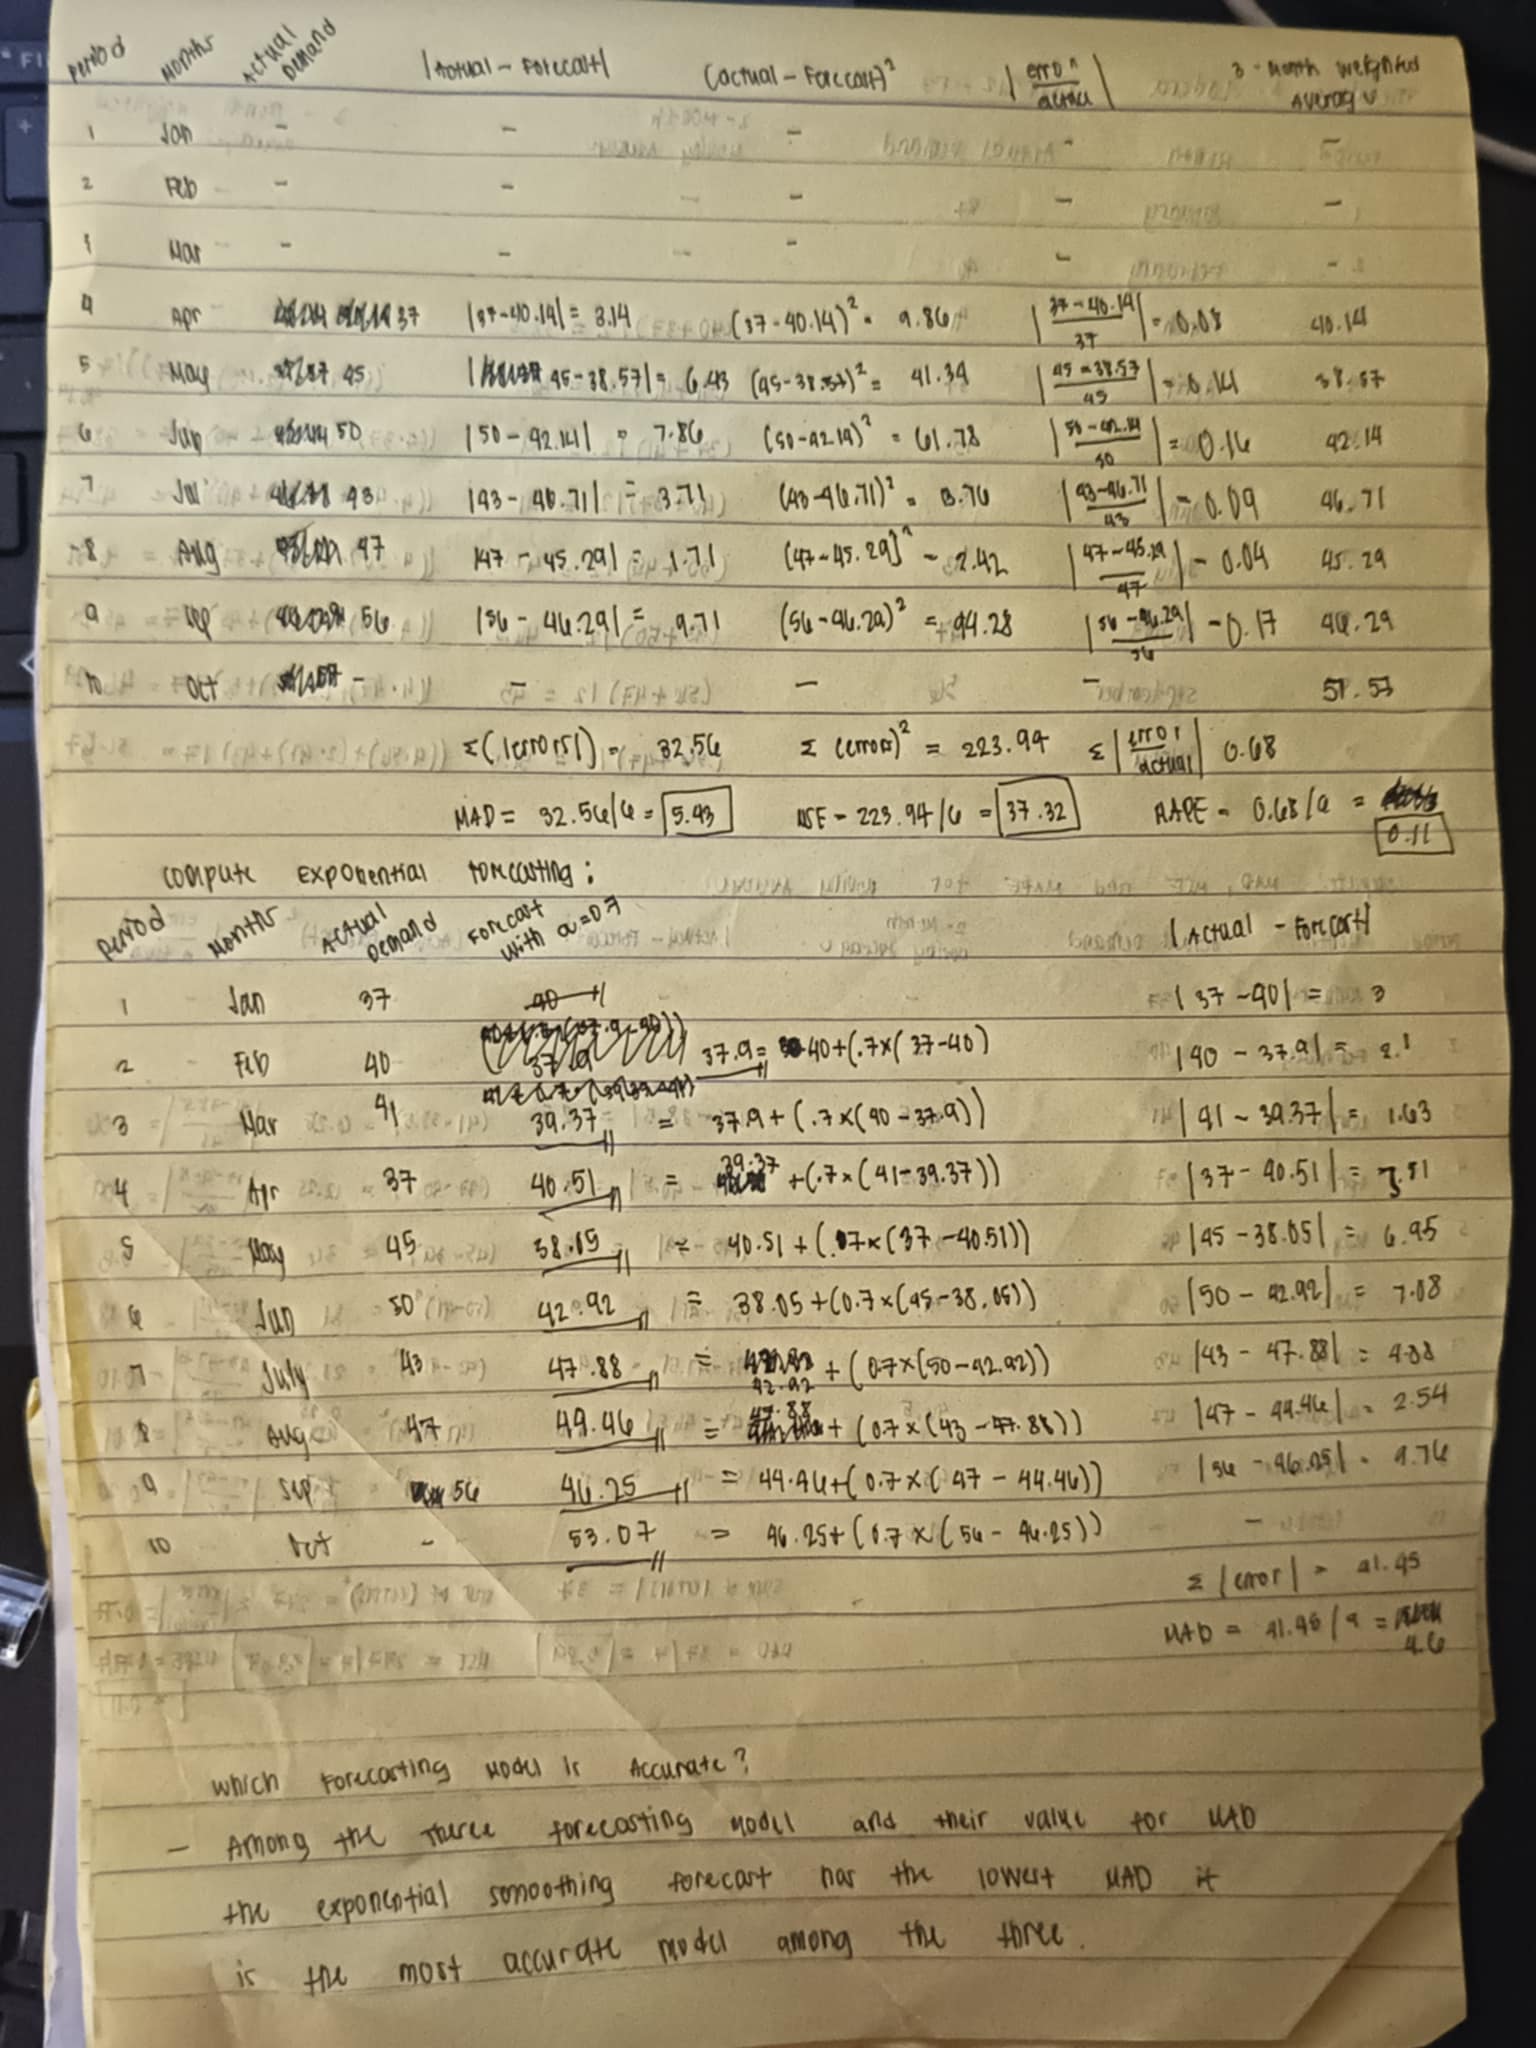 Period Months Actual Demand |Actual - Forecast| (actual - Forecast)² |error/actual| 3-Month weighted Average
1 Jan - - - - -
2 Feb - - - - -
3 Mar - - - - -
4 Apr 37 |37-40.14| = 3.14 (37-40.14)² = 9.86 |37-40.14/37| = 0.08 40.14
5 May 45 |45-38.57| = 6.43 (45-38.57)² = 41.34 |45-38.57/45| = 0.14 38.57
6 Jun 50 |50-42.14| = 7.86 (50-42.14)² = 61.78 |50-42.14/50| = 0.16 42.14
7 Jul 43 |43-46.71| = 3.71 (43-46.71)² = 13.76 |43-46.71/43| = 0.09 46.71
8 Aug 47 |47-45.29| = 1.71 (47-45.29)² = 2.92 |47-45.29/47| = 0.04 45.29
9 Sep 56 |56-46.29| = 9.71 (56-46.29)² = 94.28 |56-46.29/56| = 0.17 46.29
10 Oct - - - - 51.57
Σ(|errors|) = 32.56 Σ(error)² = 223.94 Σ|error/actual| 0.68
MAD = 32.56/6 = 5.43 MSE = 223.94/6 = 37.32 MAPE = 0.68/6 = 0.11
Compute Exponential Forecasting:
Period Months Actual Demand Forecast With α=0.7 |Actual - Forecast|
1 Jan 37 40 |37-40| = 3
2 Feb 40 37.9 = 40+(.7x(37-40) |40-37.9| = 2.1
3 Mar 41 39.37 = 37.9+(.7x(40-37.9)) |41-39.37| = 1.63
4 Apr 37 40.51 = 39.37+(.7x(41-39.37)) |37-40.51| = 3.51
5 May 45 38.05 = 40.51+(.07x(37-40.51)) |45-38.05| = 6.95
6 Jun 50 42.92 = 38.05+(0.7x(45-38.05)) |50-42.92| = 7.08
7 July 43 47.88 = 42.92+(0.7x(50-42.92)) |43-47.88| = 4.88
8 Aug 47 44.46 = 47.88+(0.7x(43-47.88)) |47-44.46| = 2.54
9 Sep 56 46.25 = 44.46+(0.7x(47-44.46)) |56-46.25| = 9.76
10 Oct - 53.07 = 46.25+(0.7x(56-46.25)) -
Σ|error| = 41.45
MAD = 41.45/9 = 4.6
Which Forecasting Model is Accurate?
- Among the theree forecasting model and their value for MAD
the exponential smoothing forecast has the lowest MAD it
is the most accurate model among the three.